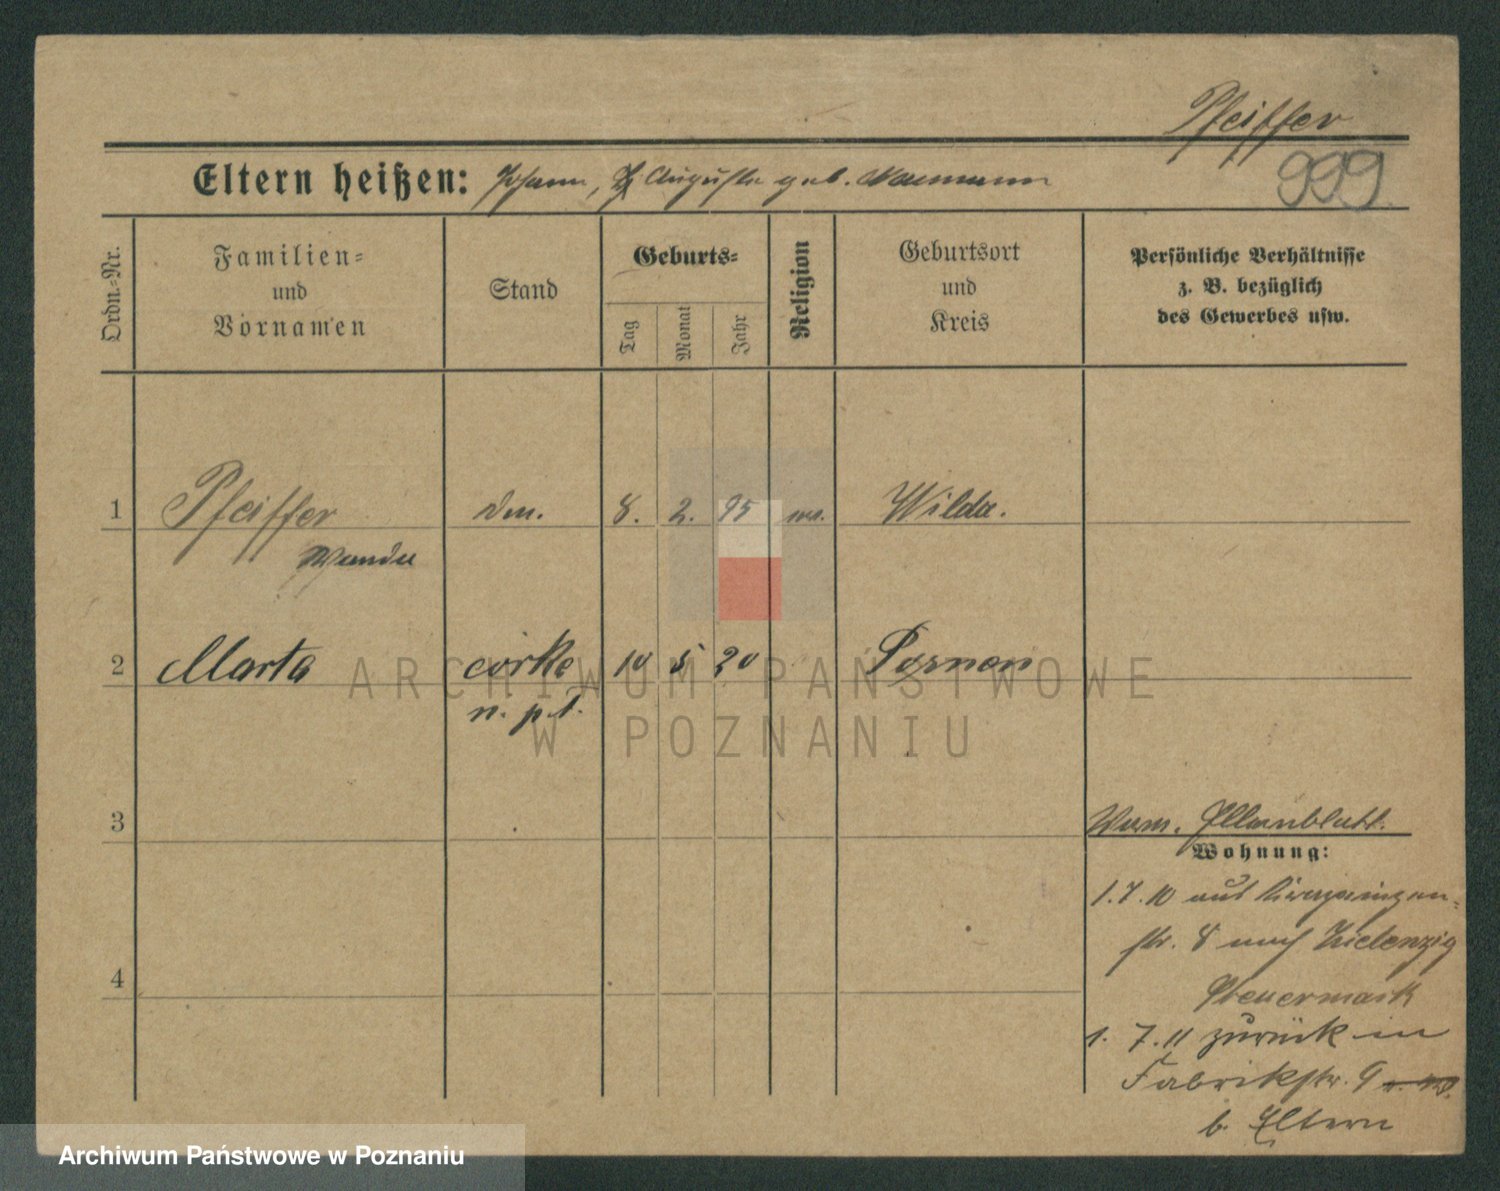 Pfeiffer
999
Eltern heißen: Johann, Auguste geb. Naumann
Ordn.-Nr.
Familien-
und
Vornamen
Stand
Geburts-
Tag
Monat
Jahr
Religion
Geburtsort
und
Kreis
Persönliche Verhältnisse
z. B. bezüglich
des Gewerbes usw.
1 Pfeiffer 8. 2. 95 Wilda.
Wanda
2 Marta córka 10 5 20 Poznań
n. p. t.
3
4
Elternblatt.
Wohnung:
1.7.10 aus
str. 8 nach Zielenzig
1. 7. 11 zurück in
Fabrikstr. 9
b. Eltern
ARCHIWUM PAŃSTWOWE
W POZNANIU
Archiwum Państwowe w Poznaniu